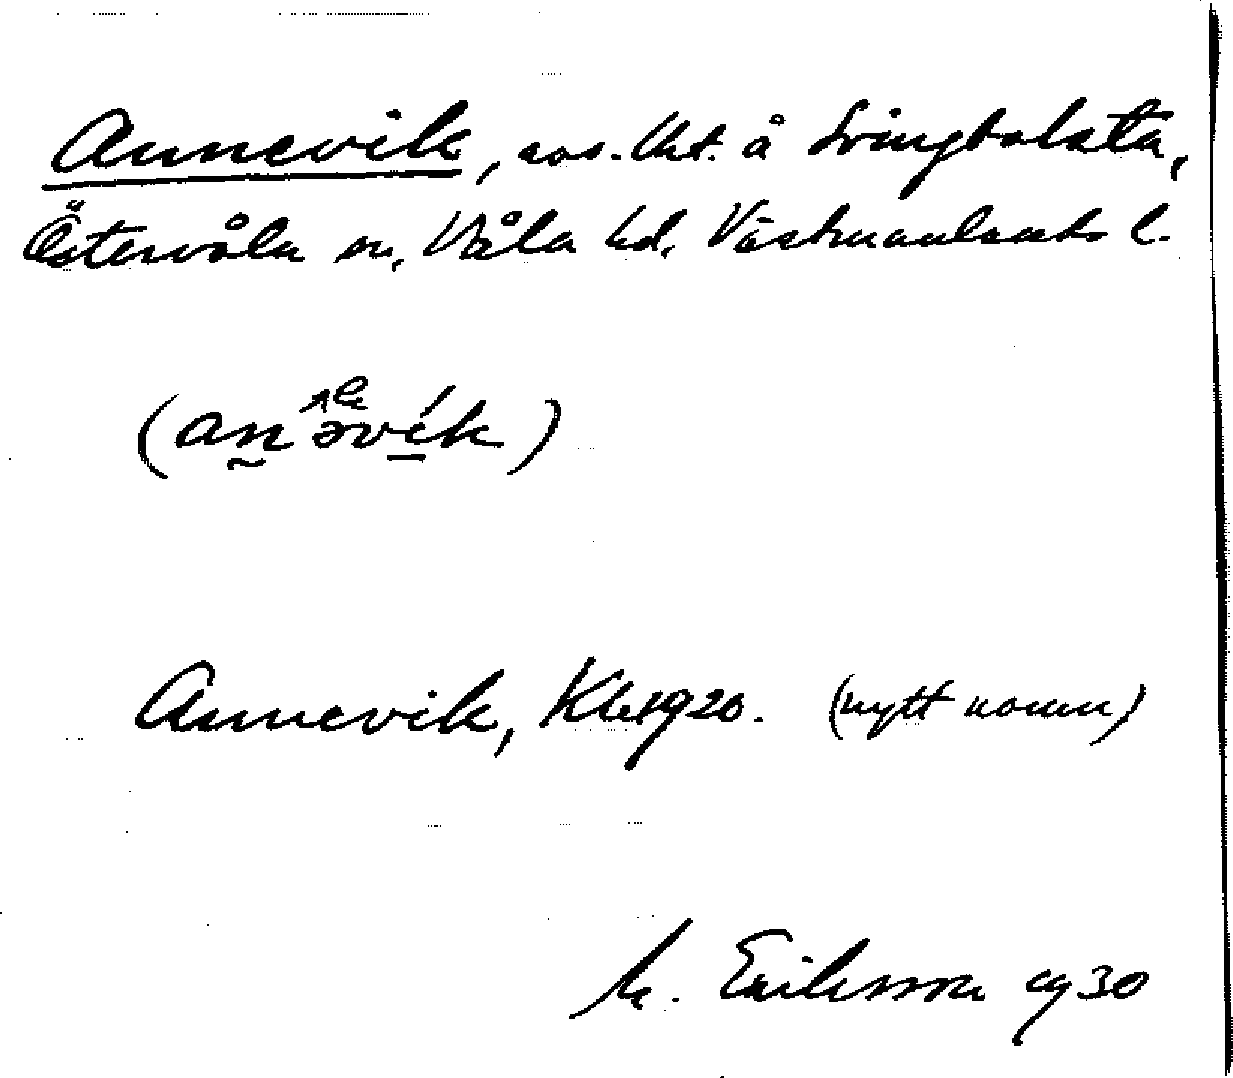 Annevik, avs. lht. å Svingbolsta,
Östervåla sn, Våla hd, Västmanlands l.
(anəvik)
Annevik, Kbr 1920. (nytt namn)
M. Eriksson 1930